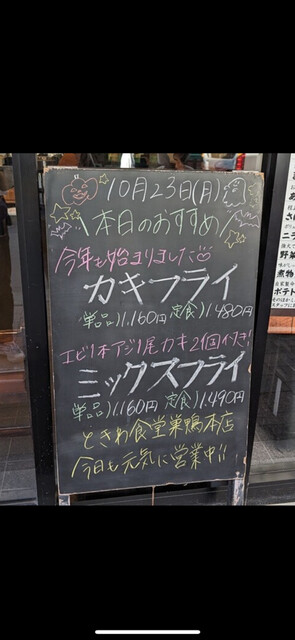 10月23日(月)
本日のおすすめ
今年も始まりました
カキフライ
単品)1.160円 定食)1.480円
エビ1本アジ1尾カキ2個付き!
ミックスフライ
単品)1.160円 定食)1.490円
ときわ食堂巣鴨本店
今日も元気に営業中!!